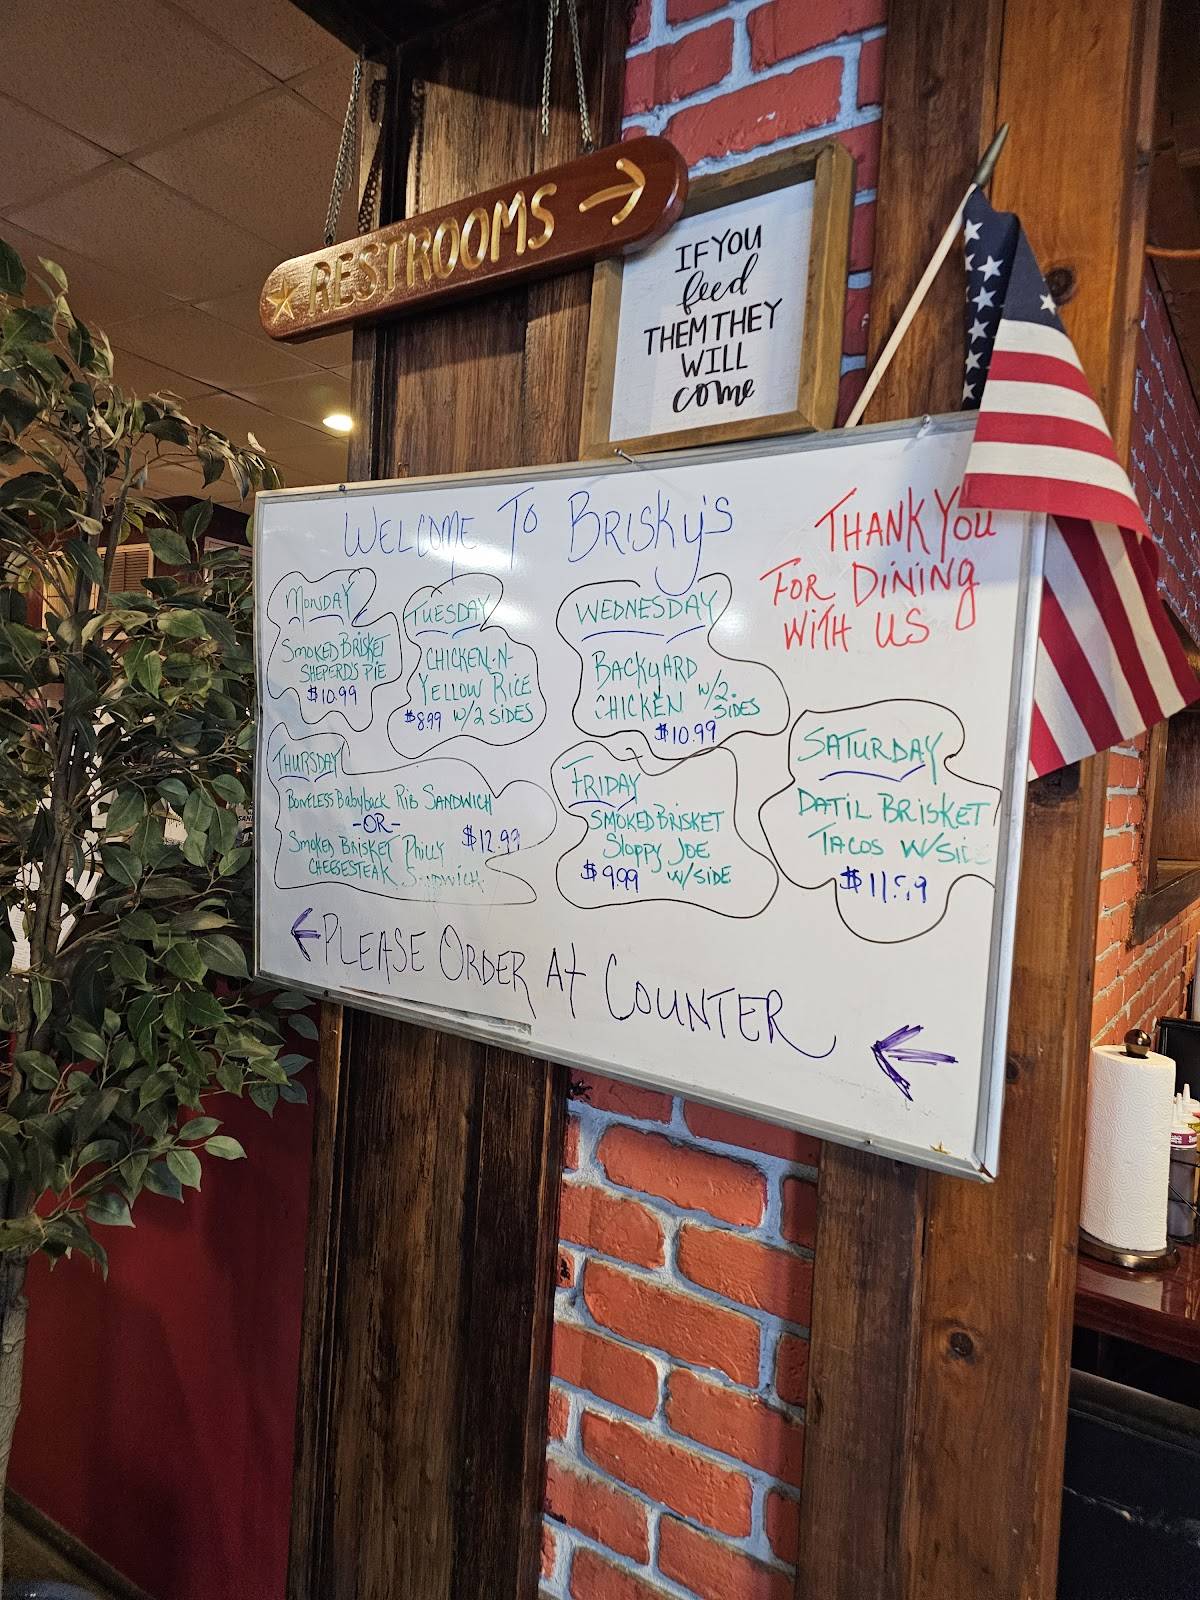 RESTROOMS →
IF YOU
feed
THEM THEY
WILL
come
WELCOME TO BRISKY'S
THANK YOU
FOR DINING
WITH US
MONDAY
SMOKED BRISKET
SHEPERD'S PIE
$10.99
TUESDAY
CHICKEN-N-
YELLOW RICE
$8.99 W/2 SIDES
WEDNESDAY
BACKYARD
CHICKEN W/2
SIDES
$10.99
THURSDAY
BONELESS BABYBACK RIB SANDWICH
-OR-
SMOKED BRISKET PHILLY $12.99
CHEESESTEAK SANDWICH
FRIDAY
SMOKED BRISKET
SLOPPY JOE
$9.99 W/SIDE
SATURDAY
DATIL BRISKET
TACOS W/SIDE
$11.99
← PLEASE ORDER AT COUNTER ←